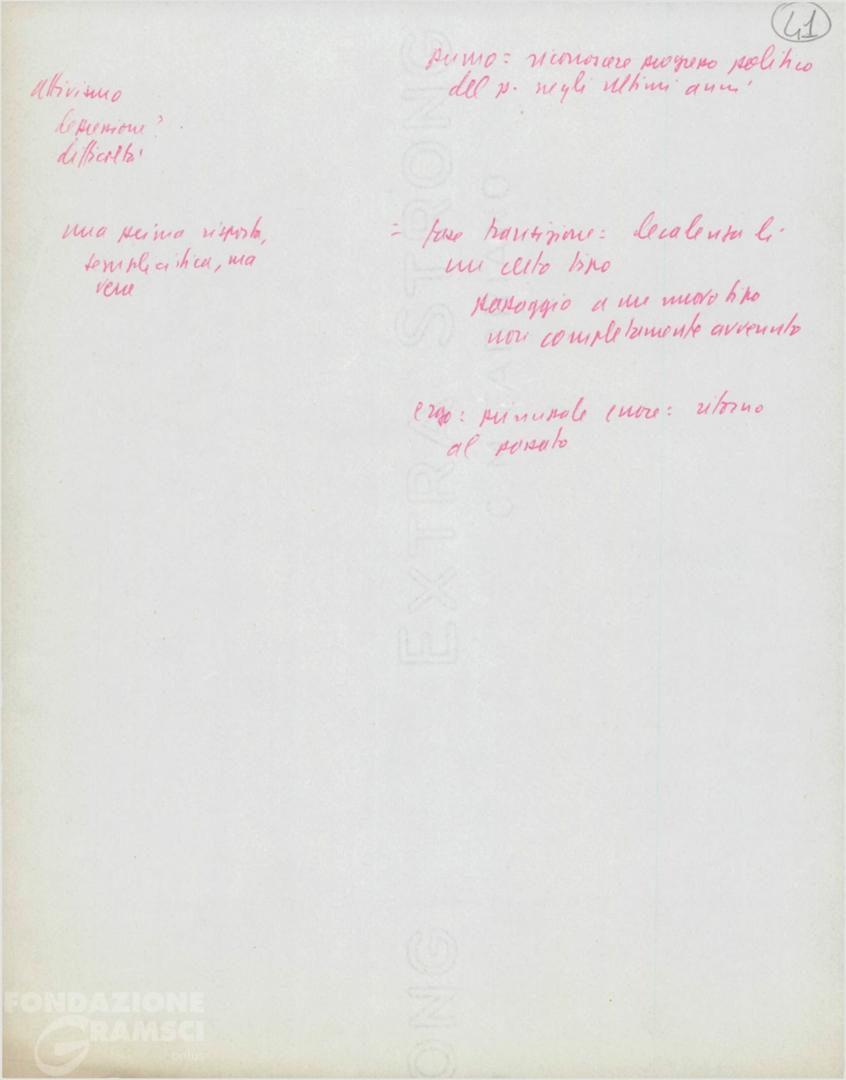 41
primo: riconoscere progresso politico
del p. negli ultimi anni
attivismo
depressione?
difficoltà
una prima risposta,
semplicistica, ma
vera
= fase transizione: decadenza di
un certo tipo
passaggio a un nuovo tipo
non completamente avvenuto
ergo: principale errore: ritorno
al passato
EXTRA STRONG
ONG
FONDAZIONE
GRAMSCI
onlus